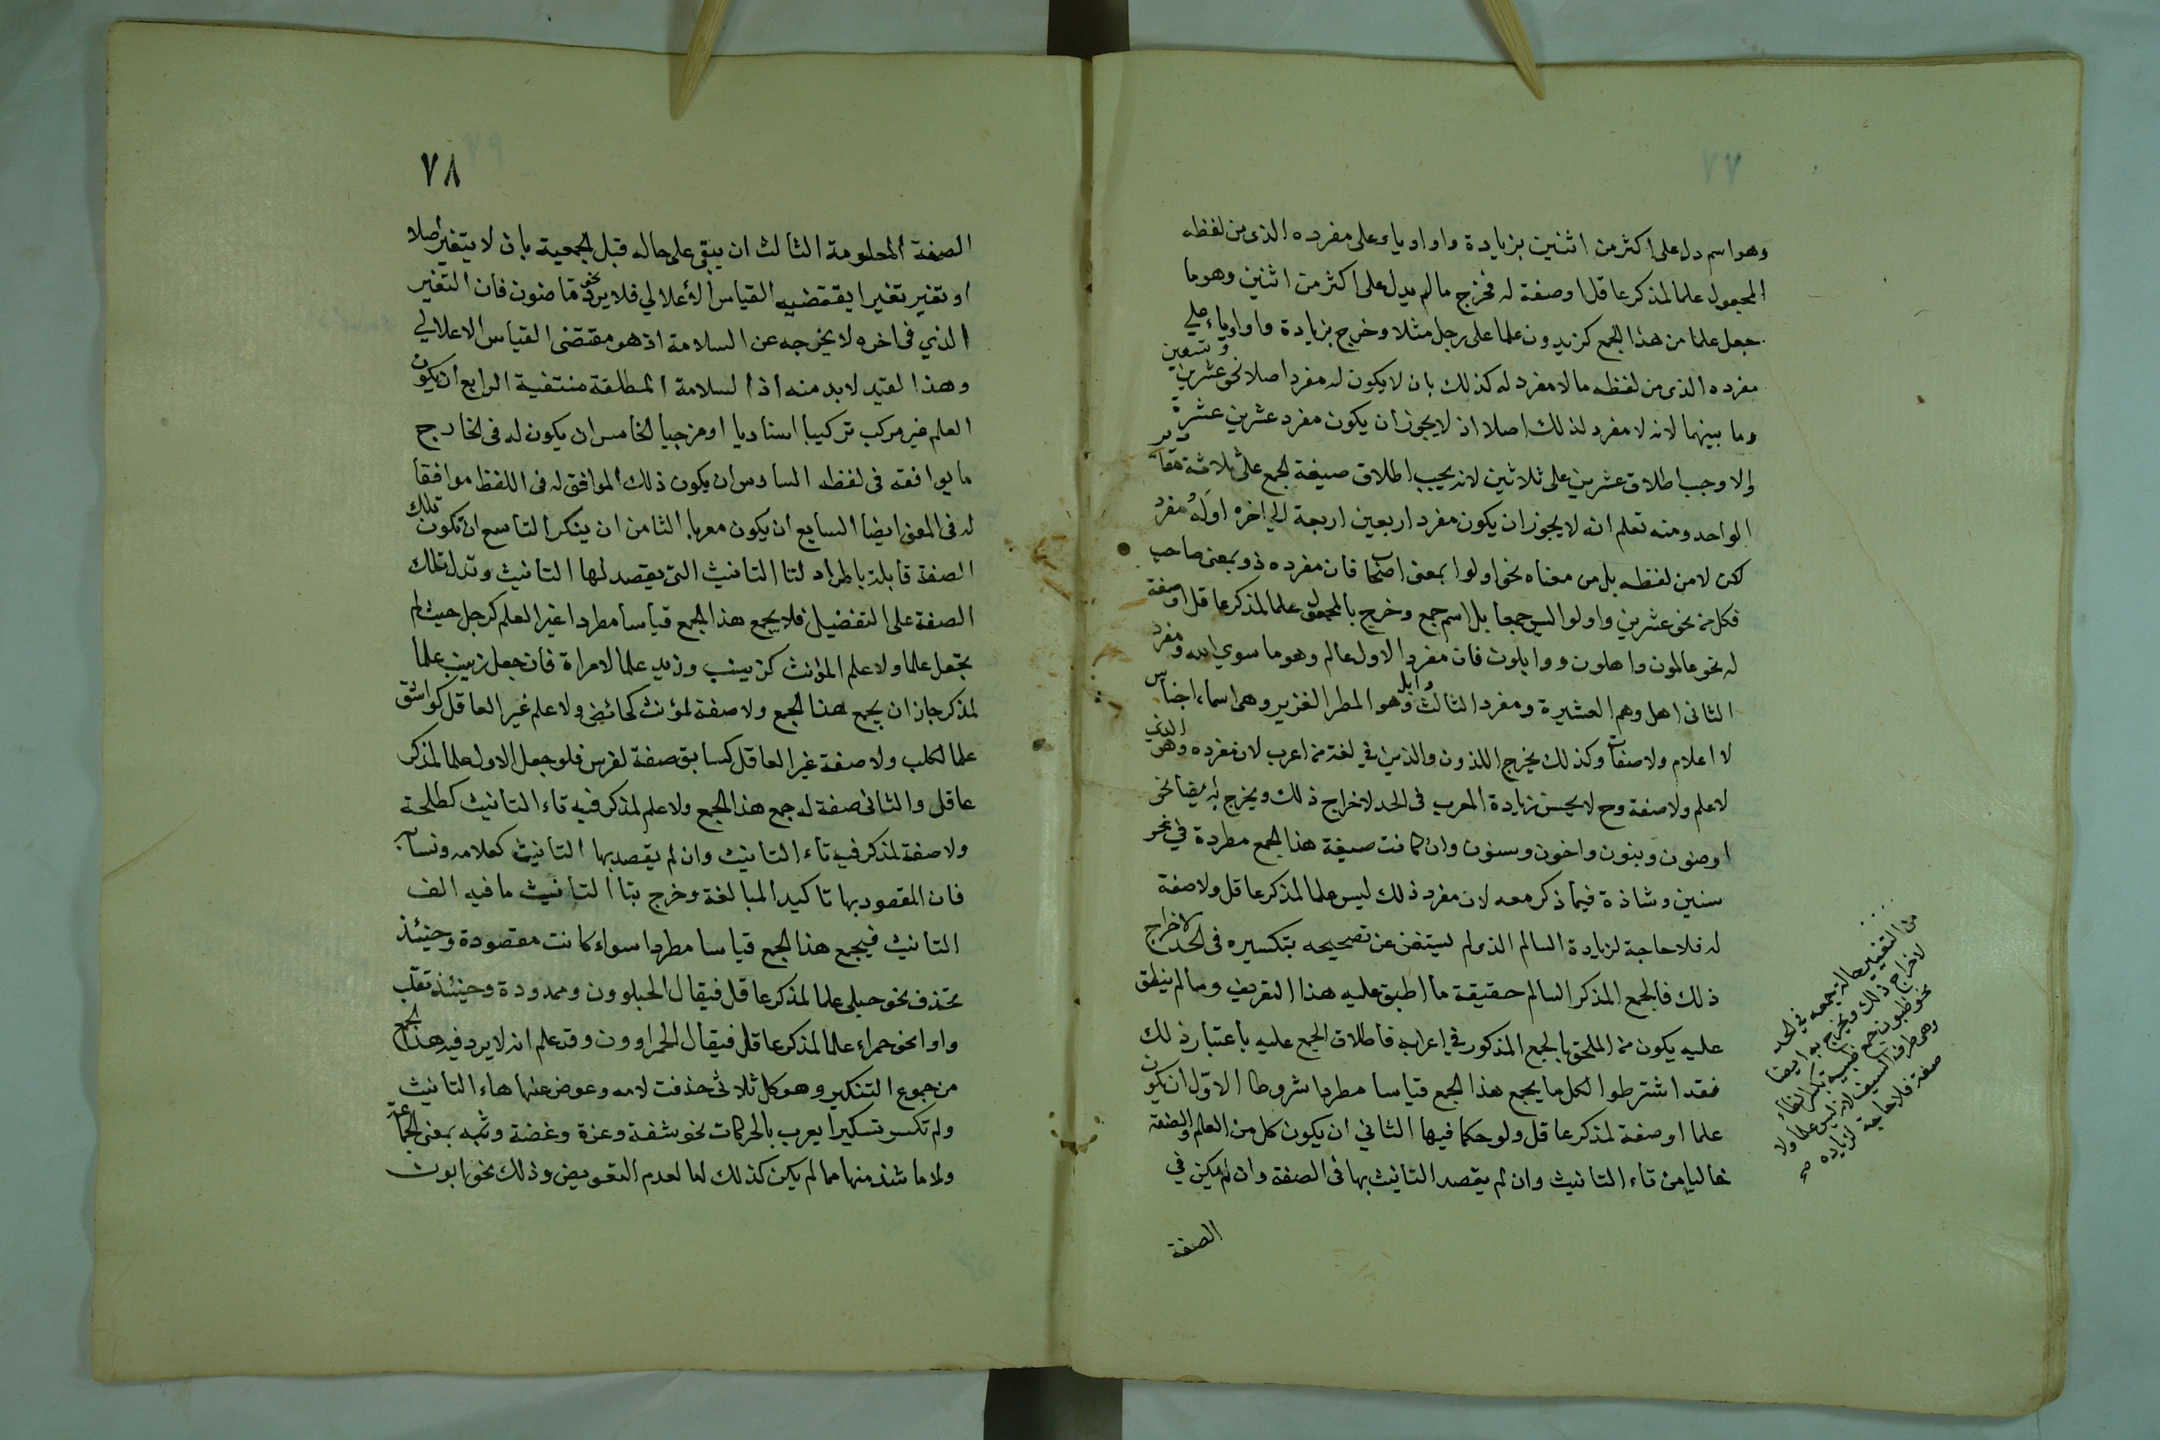 وهو اسم دل على اكثر من اثنين بزيادة واو او ياء على مفرده الذى من لفظه
المجعول علما لمذكر عاقل او صفة له فخرج ما لم يدل على اكثر من اثنين وهو ما
جعل علما من هذا الجمع كزيدون علما على رجل مثلا وخرج بزيادة واو او ياء على
مفرده الذى من لفظه ما لا مفرد له كذلك بان لا يكون له مفرد اصلا نحو عشرين وتسعين
وما بينهما لانه لا مفرد لذلك اصلا اذ لا يجوز ان يكون مفرد عشرين عشرة
والا وجب اطلاق عشرين على ثلاثين لانه يجب اطلاق صيغة الجمع على ثلاثة مقادير
الواحد ومنه تعلم انه لا يجوز ان يكون مفرد اربعين اربعة الي اخره اوله مفرد
لكن لا من لفظه بل من معناه نحو اولوا بمعنى اصحاب فان مفرده ذو بمعنى صاحب
فكل من نحو عشرين واولوا ليس جمعا بل اسم جمع وخرج بالمجعول علما لمذكر عاقل او صفة
له نحو عالمون واهلون ووابلون فان مفرد الاول عالم وهو ما سوي الله ومفرد
الثانى اهل وهم العشيرة ومفرد الثالث وابل وهو المطر الغزير وهى اسماء اجناس
لا اعلام ولا صفات وكذلك يخرج اللذون والذين في لغة من اعرب لان مفرده وهو الذي
لا علم ولا صفة وح لا يحسن زيادة المعرب فى الحد لاخراج ذلك ويخرج به ايضا نحو
ارضون وبنون واخون وسنون وان كانت صيغة هذا الجمع مطردة في نحو
سنين وشاذة فيما ذكر معه لان مفرد ذلك ليس علما لمذكر عاقل ولا صفة
له فلا حاجة لزيادة السالم الذى لم يستغن عن تصحيحه بتكسيره فى الحد لاخراج
ذلك فالجمع المذكر السالم حقيقة ما اطبق عليه هذا التعريف وما لم ينطبق
عليه يكون من الملحق بالجمع المذكور في اعرابه فاطلاق الجمع عليه باعتبار ذلك
فقد اشترطوا لكل ما يجمع هذا الجمع قياسا مطردا شروطا الاول ان يكون
علما او صفة لمذكر عاقل ولو حكما فيها الثاني ان يكون كل من العلم والصفة
خاليا من تاء التانيث وان لم يقصد التانيث بها فى الصفة وان لم يكن في
الصفة
من التغيير حالة جمعه في الحد
لاخراج ذلك ويخرج به ايضا
نحو ظبون جمع ظبية بكسر الظاء
وهى طرف السيف لانه ليس علما ولا
صفة فلا حاجة لزياده صح
٧٨
الصفة المعلومة الثالث ان يبقى على حاله قبل الجمعية بان لا يتغير اصلا
او تغير تغيرا يقتضيه القياس الاعلالي فلا يرد نحو قاضون فان التغير
الذي فى اخره لا يخرجه عن السلامة اذ هو مقتضى القياس الاعلالي
وهذا القيد لابد منه اذ السلامة المطلقة منتفية الرابع ان يكون
العلم غير مركب تركيبا اسناديا او مزجيا الخامس ان يكون له فى الخارج
ما يوافقه فى لفظه السادس ان يكون ذلك الموافق له فى اللفظ موافقا
له فى المعنى ايضا السابع ان يكون معربا الثامن ان ينكر التاسع ان تكون تلك
الصفة قابلة باطراد لتا التانيث التى يقصد لها التانيث وتدل تلك
الصفة على التفضيل فلا يجمع هذا الجمع قياسا مطردا غير العلم كرجل حيث لم
يجعل علما ولا علم المؤنث كزينب وزيد علما لامراة فان جعل زينب علما
لمذكر جاز ان يجمع هذا الجمع ولا صفة لمؤنث كحائض ولا علم غير العاقل كواشق
علما لكلب ولا صفة غير العاقل كسابق صفة لفرس فلو جعل الاول علما لمذكر
عاقل والثانى صفة له جمع هذا الجمع ولا علم لمذكر فيه تاء التانيث كطلحة
ولا صفة لمذكر فيه تاء التانيث وان لم يقصد بها التانيث كعلامه ونسابه
فان المقصود بها تاكيد المبالغة وخرج بتا التانيث ما فيه الف
التانيث فيجمع هذا الجمع قياسا مطردا سواء كانت مقصودة وحينئذ
تحذف نحو حبلى علما لمذكر عاقل فيقال الحبلوون وممدودة وحينئذ تقلب
واوا نحو حمراء علما لمذكر عاقل فيقال الحمراوون وقد علم انه لا يرد فيه هذا الجمع
من جموع التنكير وهو كل ثلاثى حذفت لامه وعوض عنها هاء التانيث
ولم تكسر تسكيرا يعرب بالحركات نحو شفة وعزة وعضة وثبه بمعنى الجماعة
ولا ما شذ منها مما لم يكن كذلك اما لعدم التعويض وذلك نحو ابون